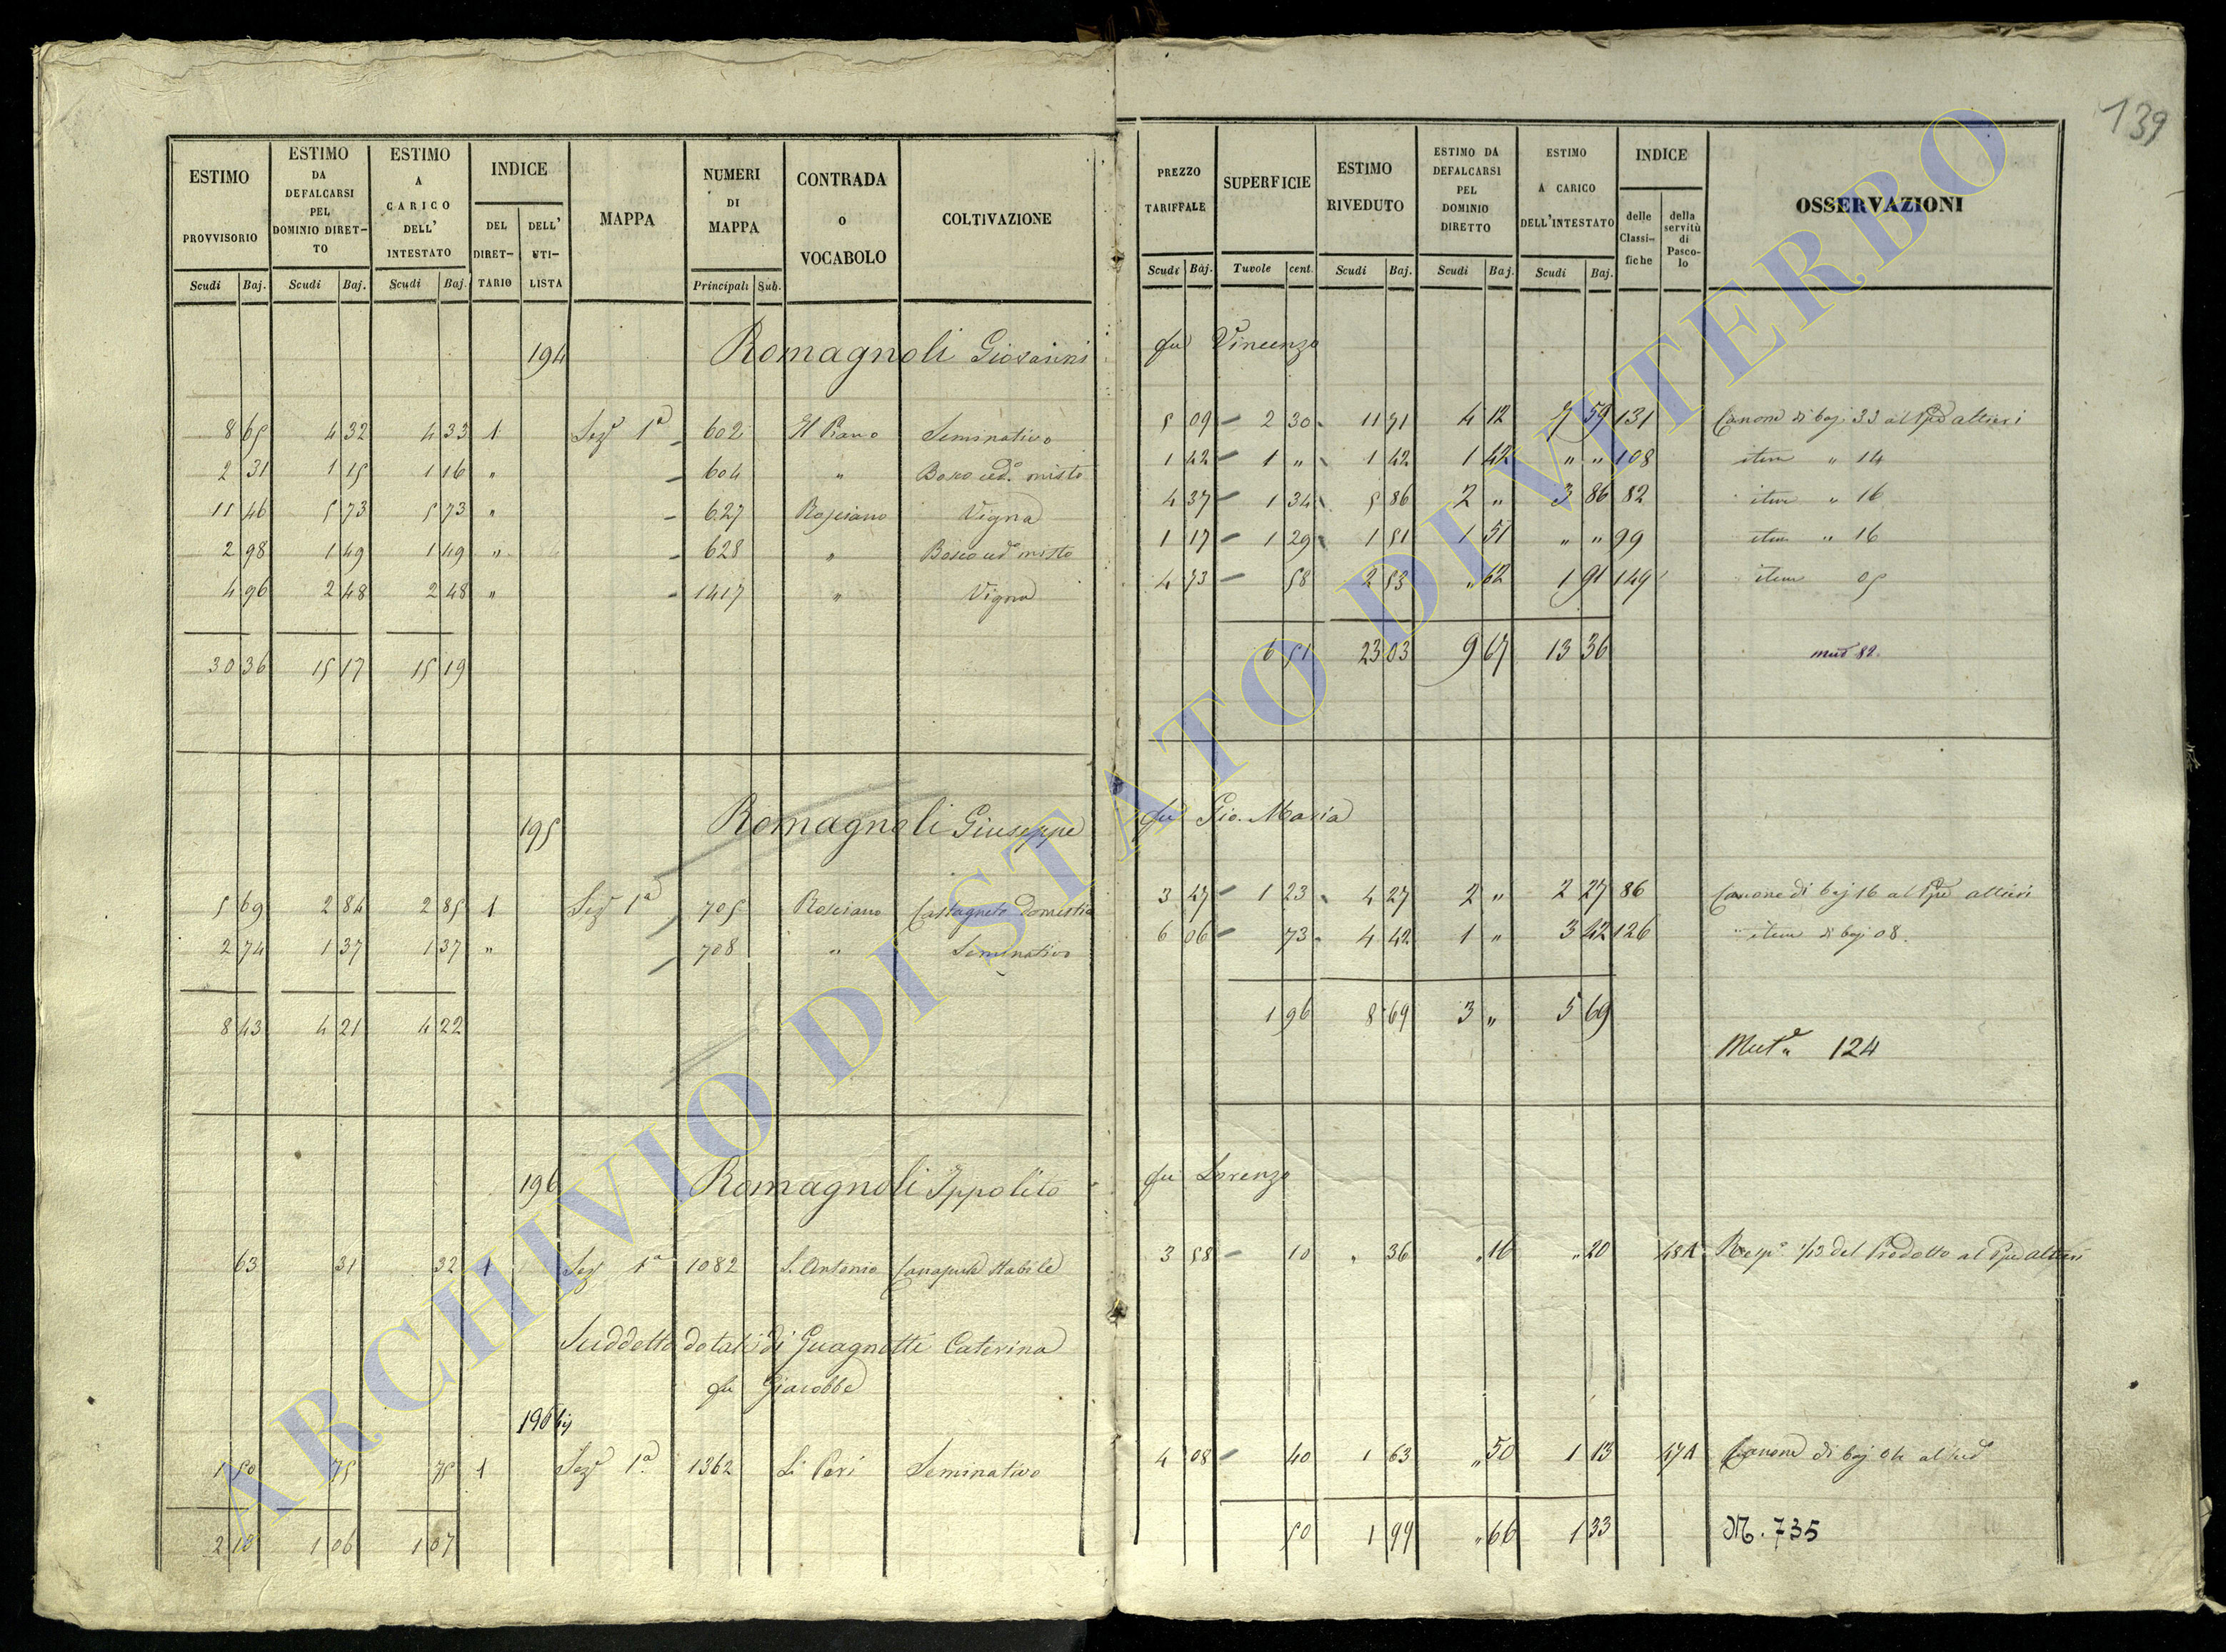 139
ESTIMO PROVVISORIO Scudi Baj.
ESTIMO DA DEFALCARSI PEL DOMINIO DIRETTO Scudi Baj.
ESTIMO A CARICO DELL' INTESTATO Scudi Baj.
INDICE DEL DIRETTARIO DELL' UTILISTA
MAPPA
NUMERI DI MAPPA Principali Sub.
CONTRADA O VOCABOLO
COLTIVAZIONE
PREZZO TARIFFALE Scudi Baj.
SUPERFICIE Tavole cent.
ESTIMO RIVEDUTO Scudi Baj.
ESTIMO DA DEFALCARSI PEL DOMINIO DIRETTO Scudi Baj.
ESTIMO A CARICO DELL'INTESTATO Scudi Baj.
INDICE delle Classifiche della servitù di Pascolo
OSSERVAZIONI
194 Romagnoli Giovanni fu Vincenzo
8 65 4 32 4 33 1 Sez.e 1a 602 Il Piano Seminativo 5 09 2 30 11 71 4 12 7 59 131 Canone di baj. 33 al Ppe Altieri
2 31 1 15 1 16 " 604 " Bosco ced.o misto 1 42 1 " 1 42 1 42 " " 108 item " 14
11 46 5 73 5 73 " 627 Rosciano Vigna 4 37 1 34 5 86 2 " 3 86 82 item " 16
2 98 1 49 1 49 " 628 " Bosco ced.o misto 1 17 1 29 1 51 1 51 " " 99 item " 16
4 96 2 48 2 48 " 1417 " Vigna 4 73 58 2 53 " 62 1 91 149 item 05
30 36 15 17 15 19 6 51 23 03 9 67 13 36 mut 82.
195 Romagnoli Giuseppe fu Gio. Maria
5 69 2 84 2 85 1 Sez.e 1a 705 Rosciano Castagneto domestico 3 47 1 23 4 27 2 " 2 27 86 Canone di baj 16 al Ppe Altieri
2 74 1 37 1 37 " 708 " Seminativo 6 06 73 4 42 1 " 3 42 126 " item di baj 08.
8 43 4 21 4 22 1 96 8 69 3 " 5 69
Mut.e 124
196 Romagnoli Ippolito fu Lorenzo
63 31 32 1 Sez 1a 1082 S. Antonio Canapule stabile 3 58 10 " 36 " 16 " 20 48A Risp.e 1/13 del Prodotto al Ppe Altieri
Suddetto dotali di Guagnetti Caterina
fu Giacobbe
196 bis
1 50 75 75 1 Sez.e 1a 1362 Li Pari Seminativo 4 08 40 1 63 " 50 1 13 47A Canone di baj 04 al sud.o
2 13 1 06 1 07 50 1 99 " 66 1 33 M. 735
ARCHIVIO DI STATO DI VITERBO